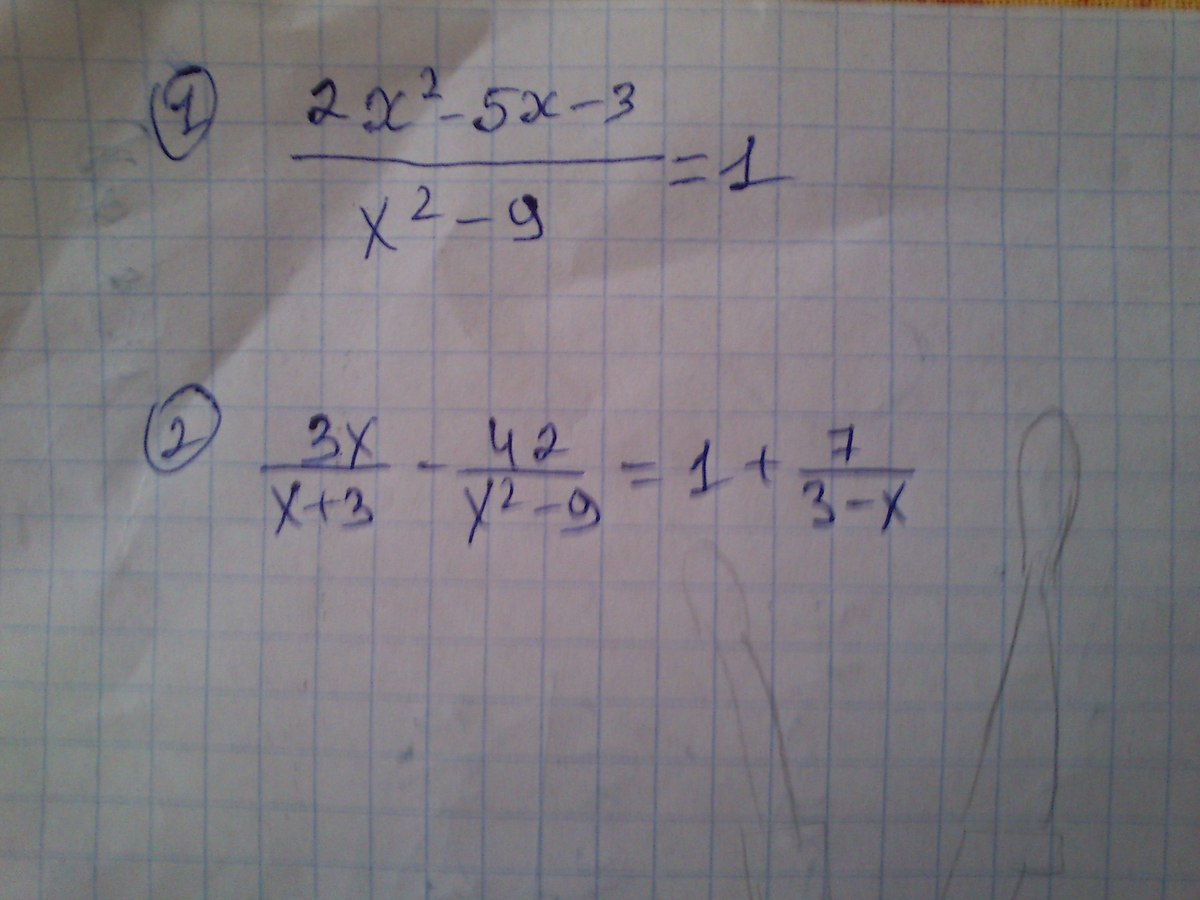 ① (2x² - 5x - 3)/(x² - 9) = 1
② 3x/(x+3) - 42/(x² - 9) = 1 + 7/(3 - x)